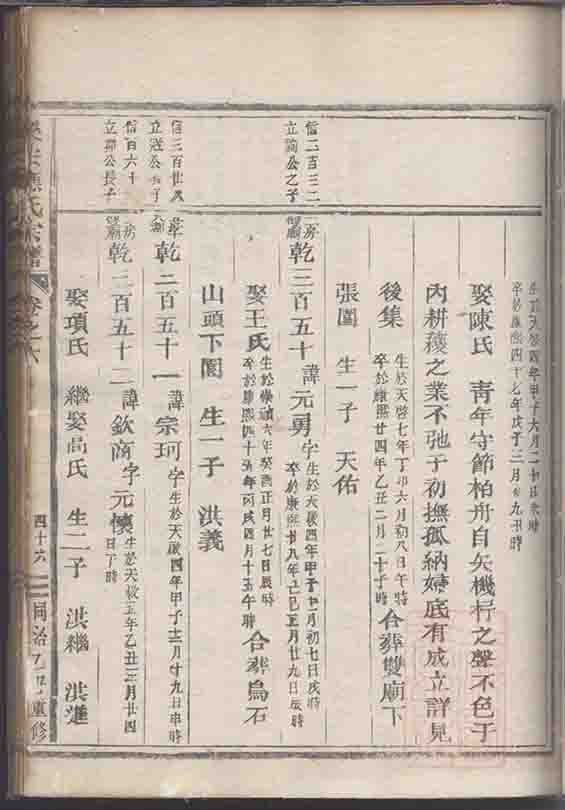 生於天啓四年甲子六月二十日未時
卒於康熙四十七年戊子三月廿九丑時
娶陳氏 青年守節柏舟自矢機杼之聲不色于
內耕穫之業不弛于初撫孤納婦底有成立詳見
後集 生於天啓七年丁卯六月初八日午時
卒於康熙廿四年乙丑二月二十子時 合葬雙廟下
張園 生一子 天佑
信二百三二
立 公之子
二房
廟 乾二百五十 諱元勇 字
生於天啟四年甲子 月初七日戌時
卒於康熙廿八年己巳正月廿九日辰時
娶王氏 生於崇禎六年癸酉正月廿七日辰時
卒於康熙四十五年丙戌四月十五午時 合葬烏石
山頭下園 生一子 洪義
信三百廿
立 公 子
乾二百五十一 諱宗珂 字
生於天啟四年甲子十二月廿九日申時
信百六十
立 公長子
房
廟 乾二百五十二 諱欽商 字元懷
生於天啟五年乙丑三月廿四
日丁時
娶項氏 繼娶尚氏 生二子 洪繼 洪進
氏宗譜 卷之六
四十六
同治九年重修